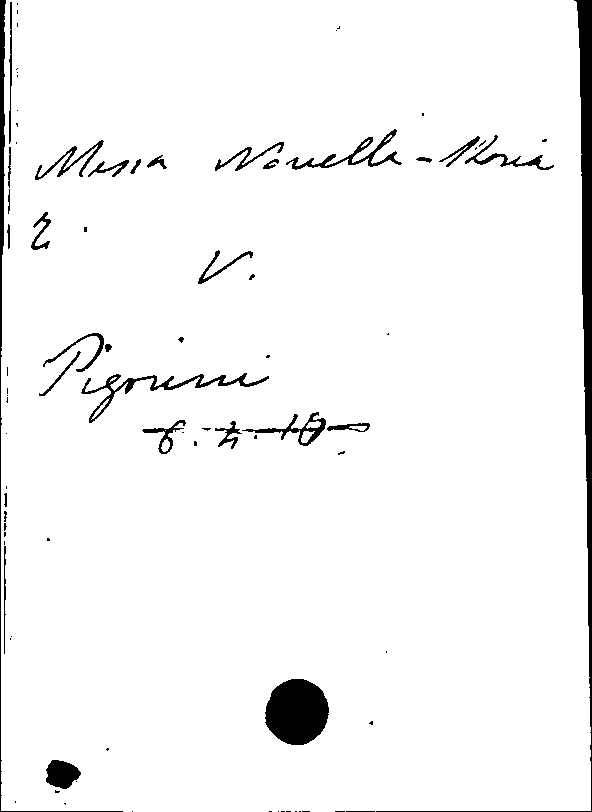 Messa Novella-Roria
2.
V.
Pigorini
6.4.10